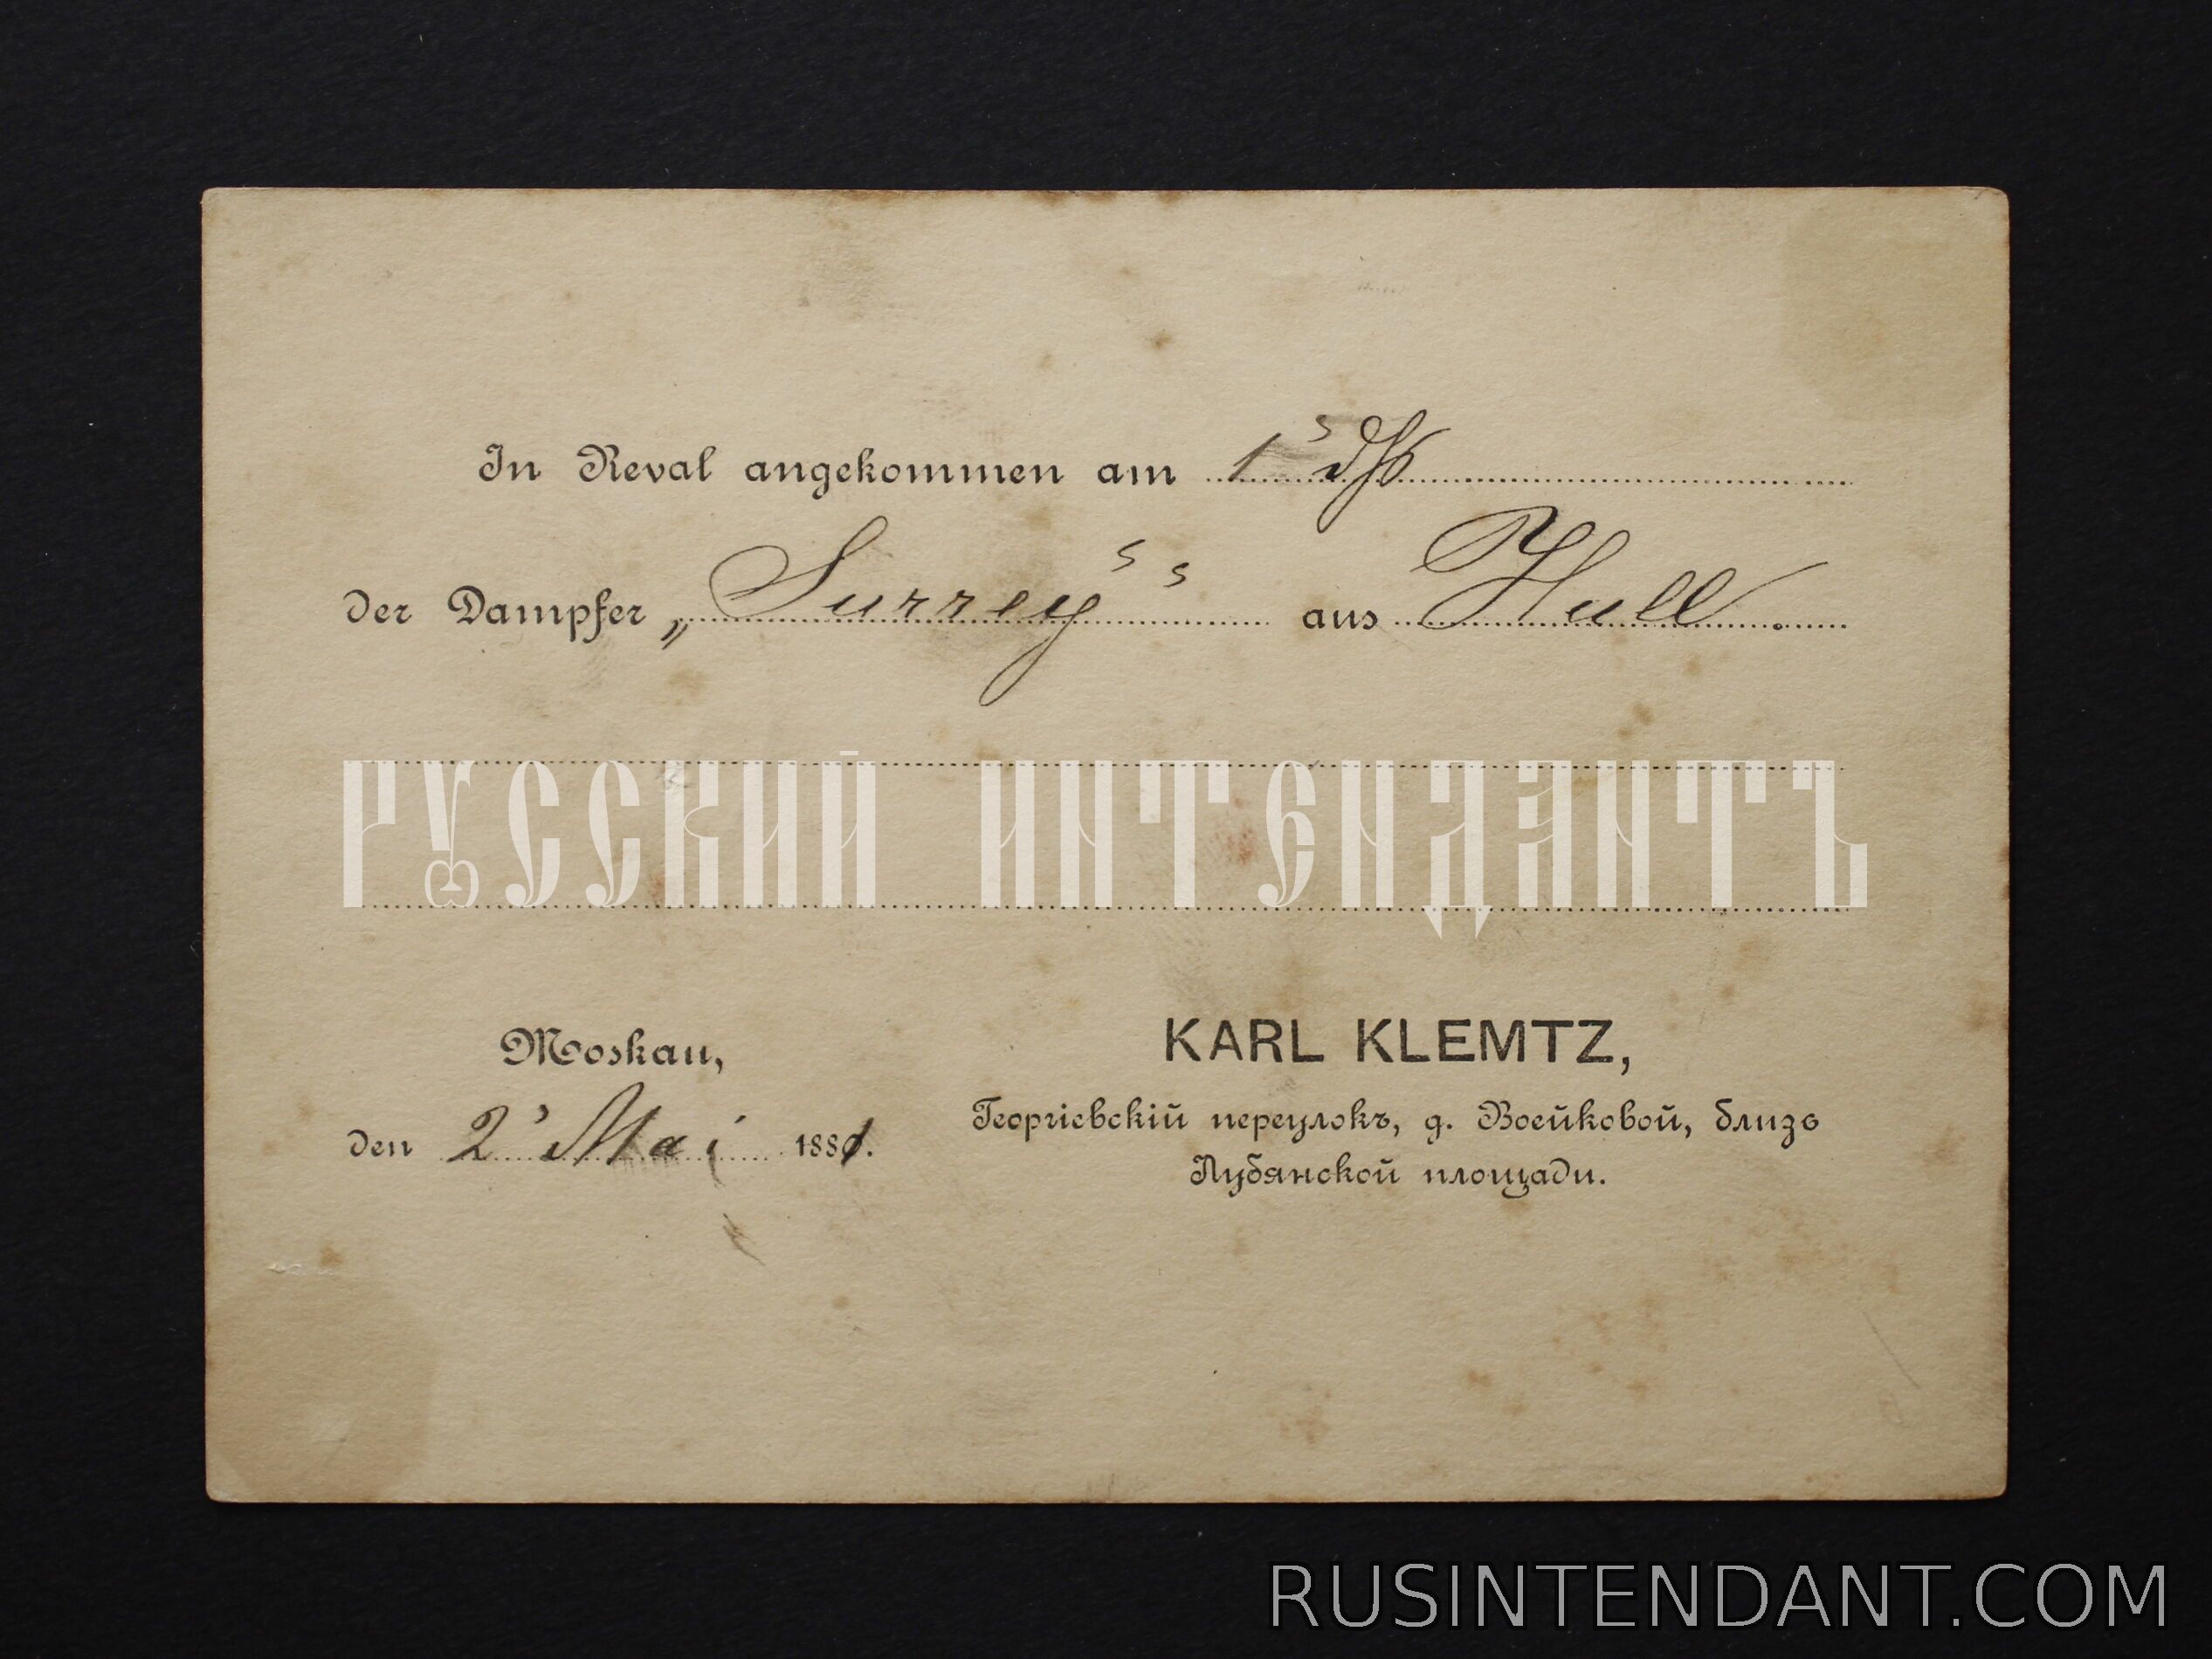 In Reval angekommen am 1s ds
der Dampfer „Surrey" aus Hull.
РУССКИЙ ИНТЕНДАНТЪ
Moskau,
den 2 Mai 1881.
KARL KLEMTZ,
Георгіевскій переулокъ, д. Воейковой, близь
Лубянской площади.
RUSINTENDANT.COM